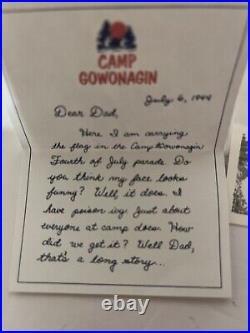 CAMP
GOWONAGIN
July 6, 1944
Dear Dad,
Here I am carrying
the flag in the Camp Gowonagin
Fourth of July parade. Do
you think my face looks
funny? Well, it does. I
have poison ivy. Just about
everyone at camp does. How
did we get it? Well Dad,
that's a long story...